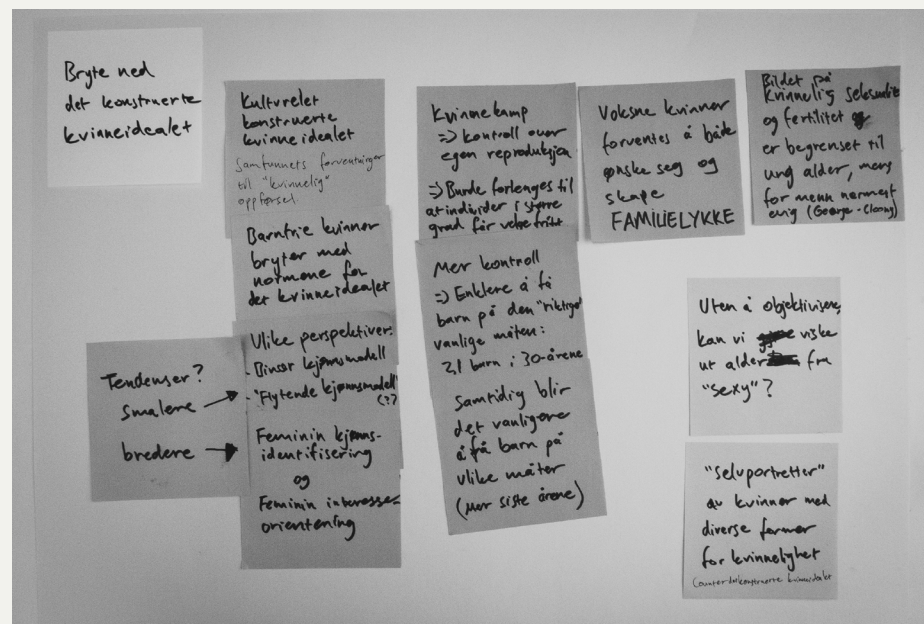 Bryte ned
det konstruerte
kvinneidealet
Kulturelet
konstruerte
kvinneidealet
Samfunnets forventninger
til "kvinnelig"
oppførsel.
Barnfrie kvinner
bryter med
normene for
det kvinneidealet
Tendenser?
smalere →
bredere →
Ulike perspektiver:
- Binær kjønnsmodell
- "Flytende kjønnsmodell"
(??
Feminin kjønns-
identifisering
og
Feminin interesse-
orientering
Kvinnekamp
=> kontroll over
egen reproduksjon
=> Burde forlenges til
at individer i større
grad får velge fritt
Mer kontroll
=> Enklere å få
barn på den "riktige"
vanlige måten:
2,1 barn i 30-årene
Samtidig blir
det vanligere
å få barn på
ulike måter
(mer siste årene)
Voksne kvinner
forventes å både
ønske seg og
skape
FAMILIELYKKE
Bildet på
kvinnelig seksualitet
og fertilitet
er begrenset til
ung alder, mens
for menn nærmest
evig (George-Cloony)
Uten å objektivisere,
kan vi viske
ut alder fra
"sexy"?
"selvportretter"
av kvinner med
diverse former
for kvinnelighet